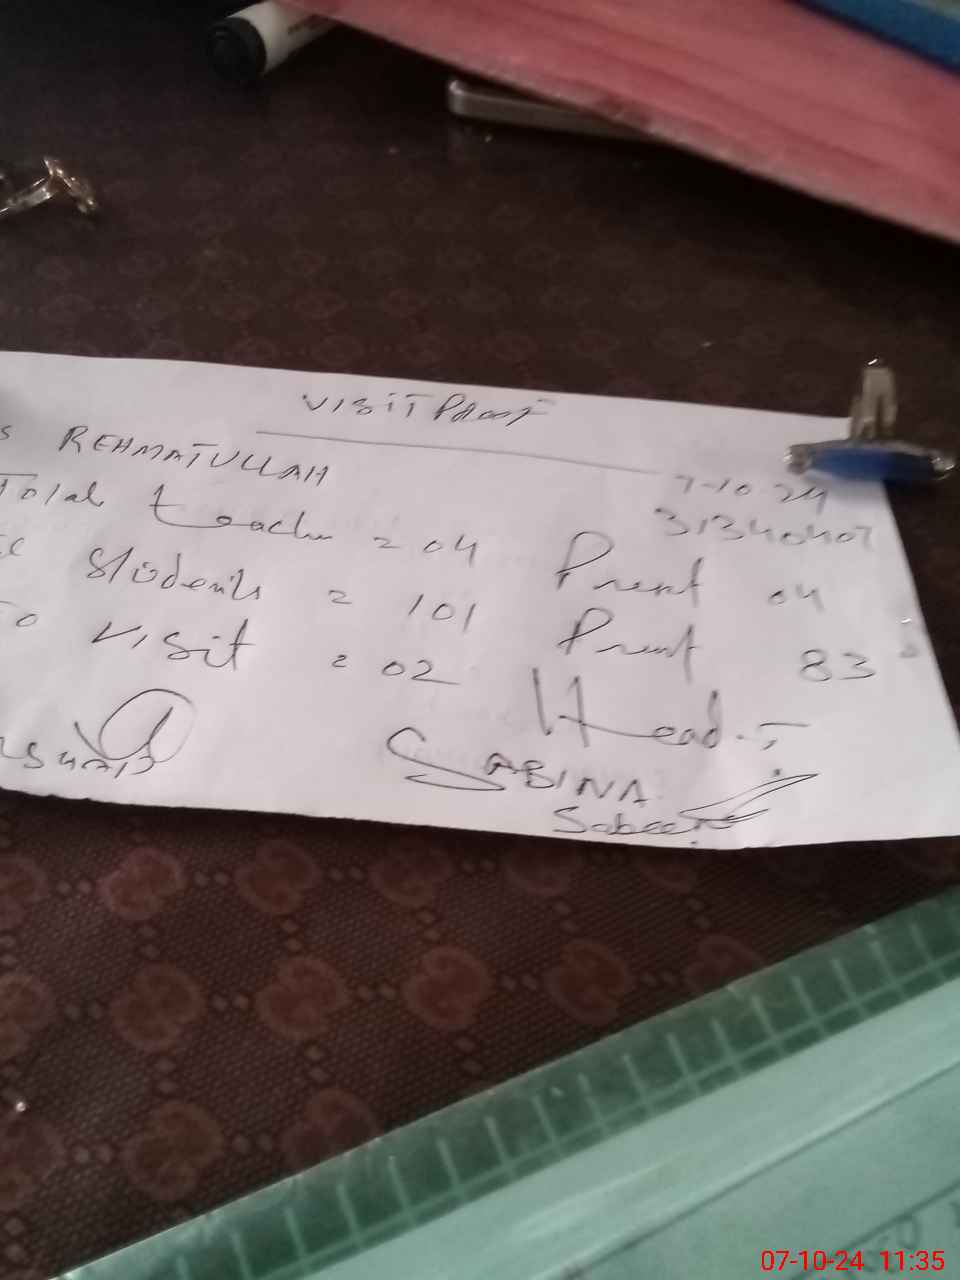 VISIT Proof
S REHMATULLAH
7-10-24
31340407
Total teach = 04 Present 04
Students = 101 Present 83
TO visit = 02
Head:-
SABINA
Sabeen
07-10-24 11:35